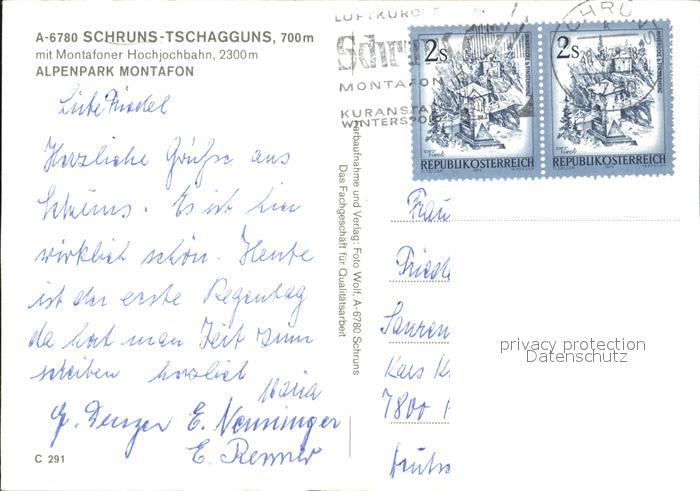 A-6780 SCHRUNS-TSCHAGGUNS, 700m
mit Montafoner Hochjochbahn, 2300m
ALPENPARK MONTAFON
Liebe Friedel
Herzliche Grüße aus
Schruns. Es ist hier
wirklich schön. Heute
ist der erste Regentag
da hat man Zeit zum
schreiben herzlich
Maria
E. Nenninger
E. Renner
C 291
Farbaufnahme und Verlag: Foto Wolf, A-6780 Schruns
Das Fachgeschäft für Qualitätsarbeit
LUFTKURORT
Schruns
MONTAFON
KURANSTA
WINTERSPO
2s
Tirol
REPUBLIK ÖSTERREICH
2s
Tirol
REPUBLIK ÖSTERREICH
SCHRU
Frau
Fried
Kais
7800
Deuts
privacy protection
Datenschutz